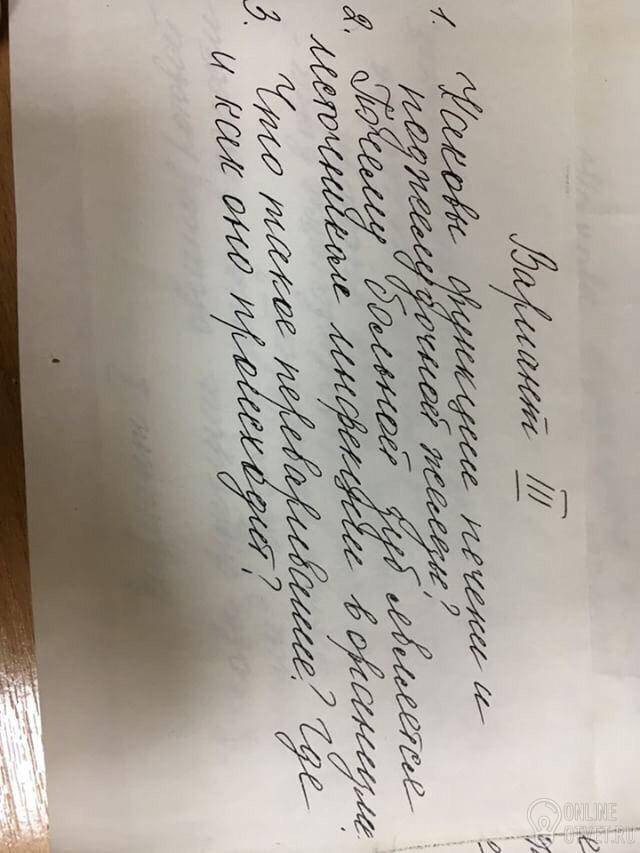 Вариант III
1. Каковы функции печени и
поджелудочной железы?
2. Почему больной зуб является
источником инфекции в организме.
3. Что такое переваривание? Где
и как оно происходит?
ONLINE
OTVET.RU